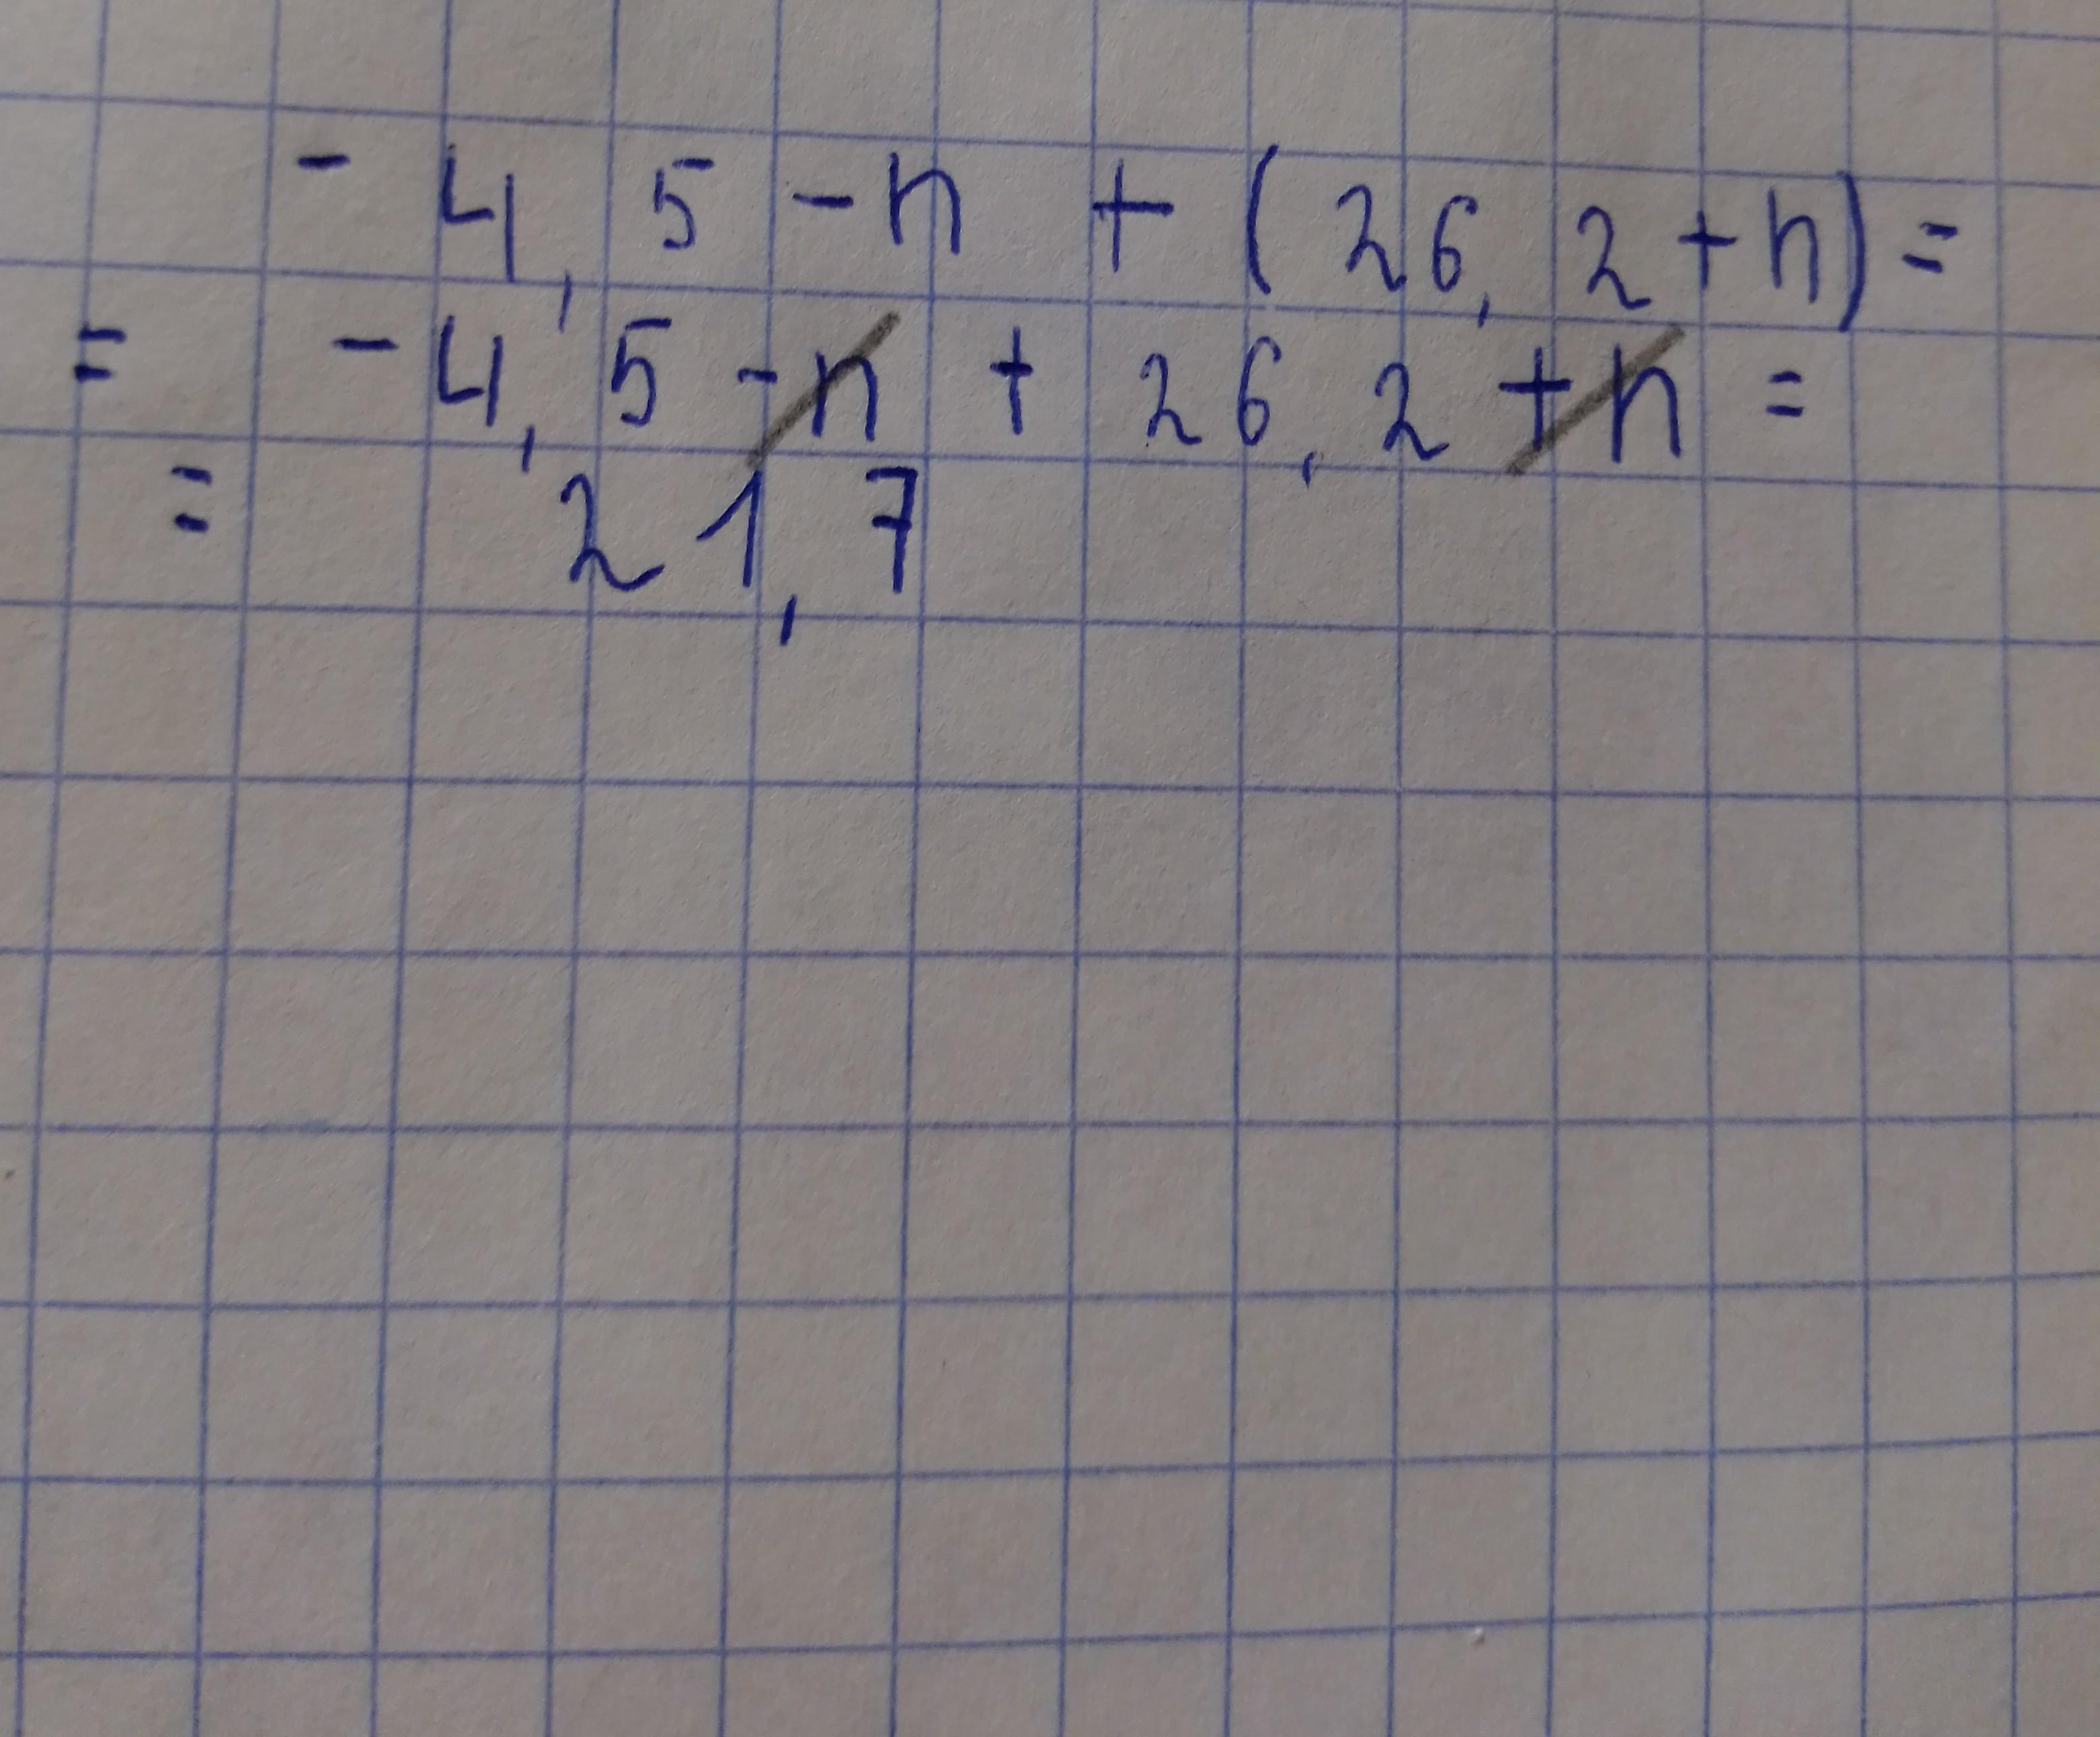 - 4,5 - n + (26,2 + n) =
= - 4,5 - n + 26,2 + n =
= 21,7